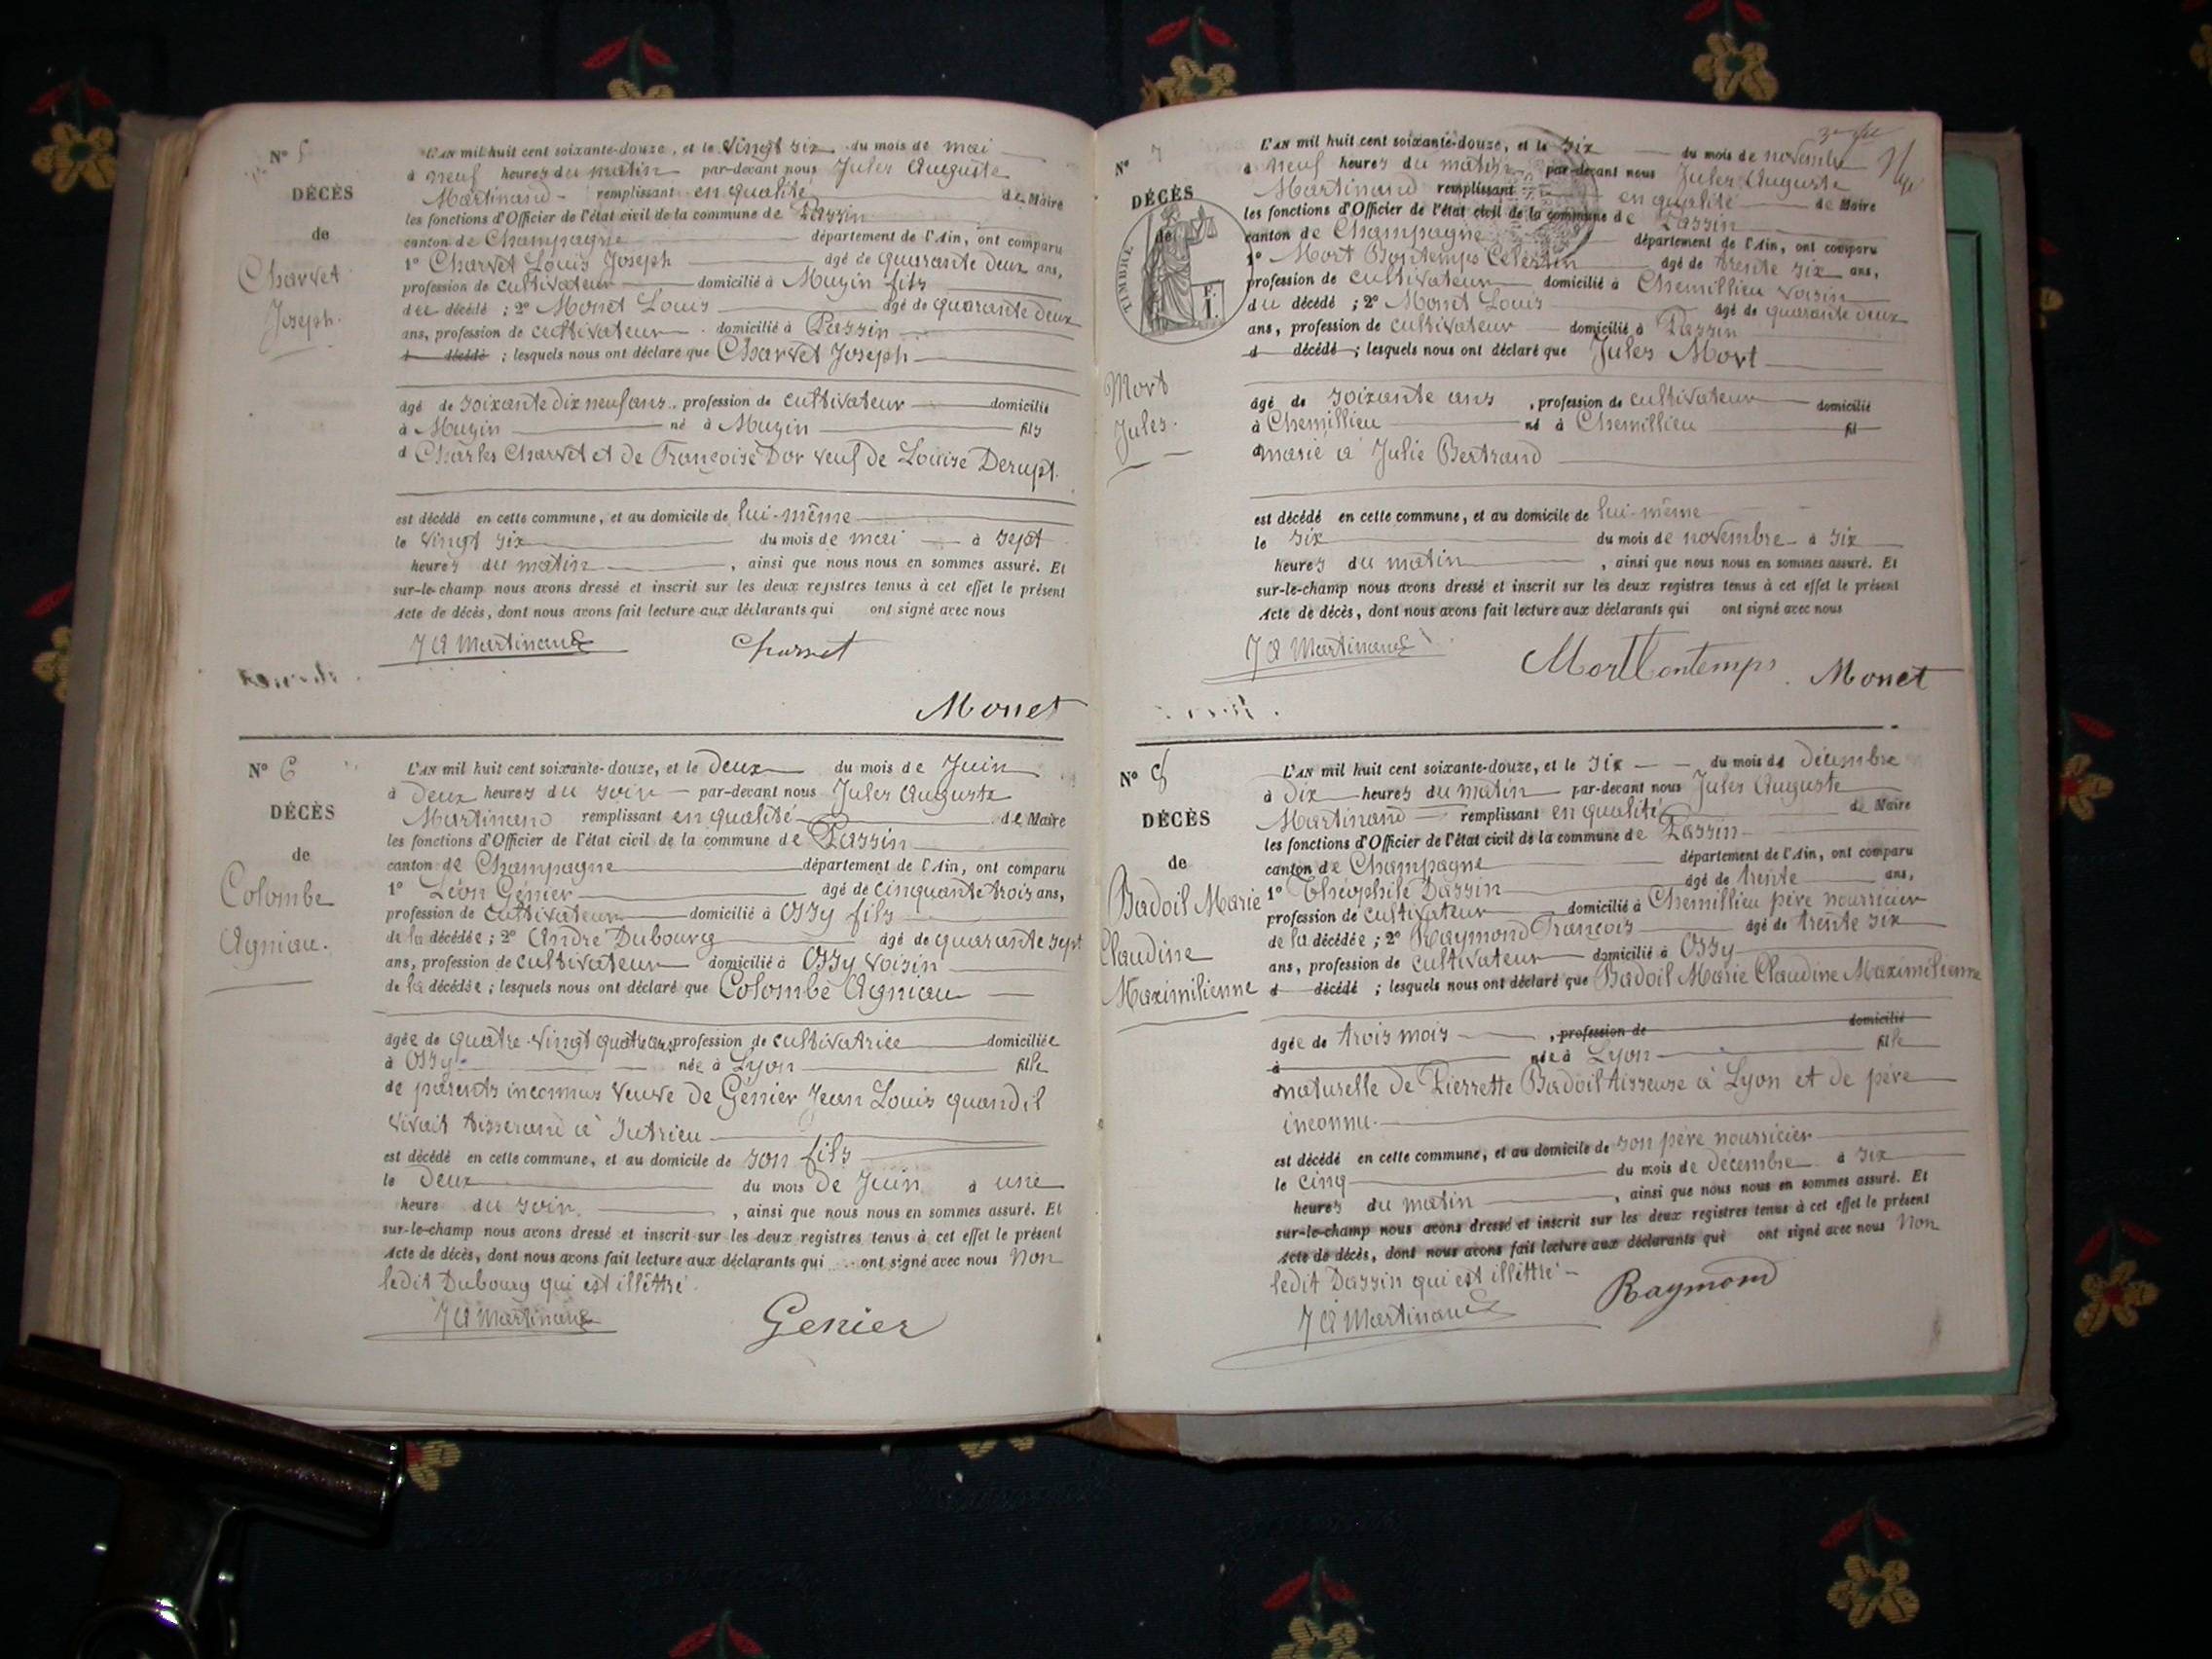 N° 5
DÉCÈS
de
Charvet
Joseph.
L'AN mil huit cent soixante-douze, et le Vingt six du mois de mai
à neuf heures du matin par-devant nous Jules Auguste
Martinand remplissant en qualité de Maire
les fonctions d'Officier de l'état civil de la commune de Passin
canton de Champagne département de l'Ain, ont comparu
1° Charvet Louis Joseph âgé de quarante deux ans,
profession de cultivateur domicilié à Muzin fils
du décédé ; 2° Monet Louis âgé de quarante deux
ans, profession de cultivateur domicilié à Passin
d décédé ; lesquels nous ont déclaré que Charvet Joseph
âgé de soixante dix neuf ans, profession de cultivateur domicilié
à Muzin né à Muzin fils
d Charles Charvet et de Françoise Dor veuf de Louise Derupt.
est décédé en cette commune, et au domicile de lui-même
le Vingt six du mois de mai à sept
heures du matin, ainsi que nous nous en sommes assuré. Et
sur-le-champ nous avons dressé et inscrit sur les deux registres tenus à cet effet le présent
Acte de décès, dont nous avons fait lecture aux déclarants qui ont signé avec nous
J A Martinand Charvet
Monet
N° 6
DÉCÈS
de
Colombe
Agniau.
L'AN mil huit cent soixante-douze, et le Deux du mois de Juin
à Deux heures du soir par-devant nous Jules Auguste
Martinand remplissant en qualité de Maire
les fonctions d'Officier de l'état civil de la commune de Passin
canton de Champagne département de l'Ain, ont comparu
1° Léon Génier âgé de cinquante trois ans,
profession de cultivateur domicilié à Ossy fils
de la décédée ; 2° André Dubourg âgé de quarante sept
ans, profession de cultivateur domicilié à Ossy Voisin
de la décédée ; lesquels nous ont déclaré que Colombe Agniau
âgée de quatre-vingt quatre ans, profession de cultivatrice domiciliée
à Ossy née à Lyon fille
de parents inconnus Veuve de Génier Jean Louis quand il
vivait tisserand à Sutrieu
est décédé en cette commune, et au domicile de son fils
le Deux du mois de Juin à une
heure du soir, ainsi que nous nous en sommes assuré. Et
sur-le-champ nous avons dressé et inscrit sur les deux registres tenus à cet effet le présent
Acte de décès, dont nous avons fait lecture aux déclarants qui ont signé avec nous Non
ledit Dubourg qui est illétré.
J A Martinand Genier
N° 7
DÉCÈS
de
TIMBRE
F.
1.
Mort
Jules.
L'AN mil huit cent soixante-douze, et le Six du mois de novembre
à neuf heures du matin par-devant nous Jules Auguste
Martinand remplissant en qualité de Maire
les fonctions d'Officier de l'état civil de la commune de Passin
canton de Champagne département de l'Ain, ont comparu
1° Mort Bontemps Célestin âgé de trente six ans,
profession de cultivateur domicilié à Chemillieu voisin
du décédé ; 2° Monet Louis âgé de quarante deux
ans, profession de cultivateur domicilié à Passin
d décédé ; lesquels nous ont déclaré que Jules Mort
âgé de soixante ans, profession de cultivateur domicilié
à Chemillieu né à Chemillieu fil
marié à Julie Bertrand
est décédé en cette commune, et au domicile de lui-même
le six du mois de novembre à six
heures du matin, ainsi que nous nous en sommes assuré. Et
sur-le-champ nous avons dressé et inscrit sur les deux registres tenus à cet effet le présent
Acte de décès, dont nous avons fait lecture aux déclarants qui ont signé avec nous
J A Martinand Mort Bontemps Monet
N° 8
DÉCÈS
de
Badoil Marie
Claudine
Maximilienne
L'AN mil huit cent soixante-douze, et le Six du mois de décembre
à Dix heures du matin par-devant nous Jules Auguste
Martinand remplissant en qualité de Maire
les fonctions d'Officier de l'état civil de la commune de Passin
canton de Champagne département de l'Ain, ont comparu
1° Théophile Dassin âgé de trente ans,
profession de cultivateur domicilié à Chemillieu père nourricier
de la décédée ; 2° Raymond François âgé de trente six
ans, profession de cultivateur domicilié à Ossy
d décédé ; lesquels nous ont déclaré que Badoil Marie Claudine Maximilienne
âgée de trois mois, profession de domicilié
à née à Lyon fille
naturelle de Pierrette Badoil tisseuse à Lyon et de père
inconnu.
est décédé en cette commune, et au domicile de son père nourricier
le cinq du mois de décembre à six
heures du matin, ainsi que nous nous en sommes assuré. Et
sur-le-champ nous avons dressé et inscrit sur les deux registres tenus à cet effet le présent
Acte de décès, dont nous avons fait lecture aux déclarants qui ont signé avec nous Non
ledit Dassin qui est illétré
J A Martinand Raymond